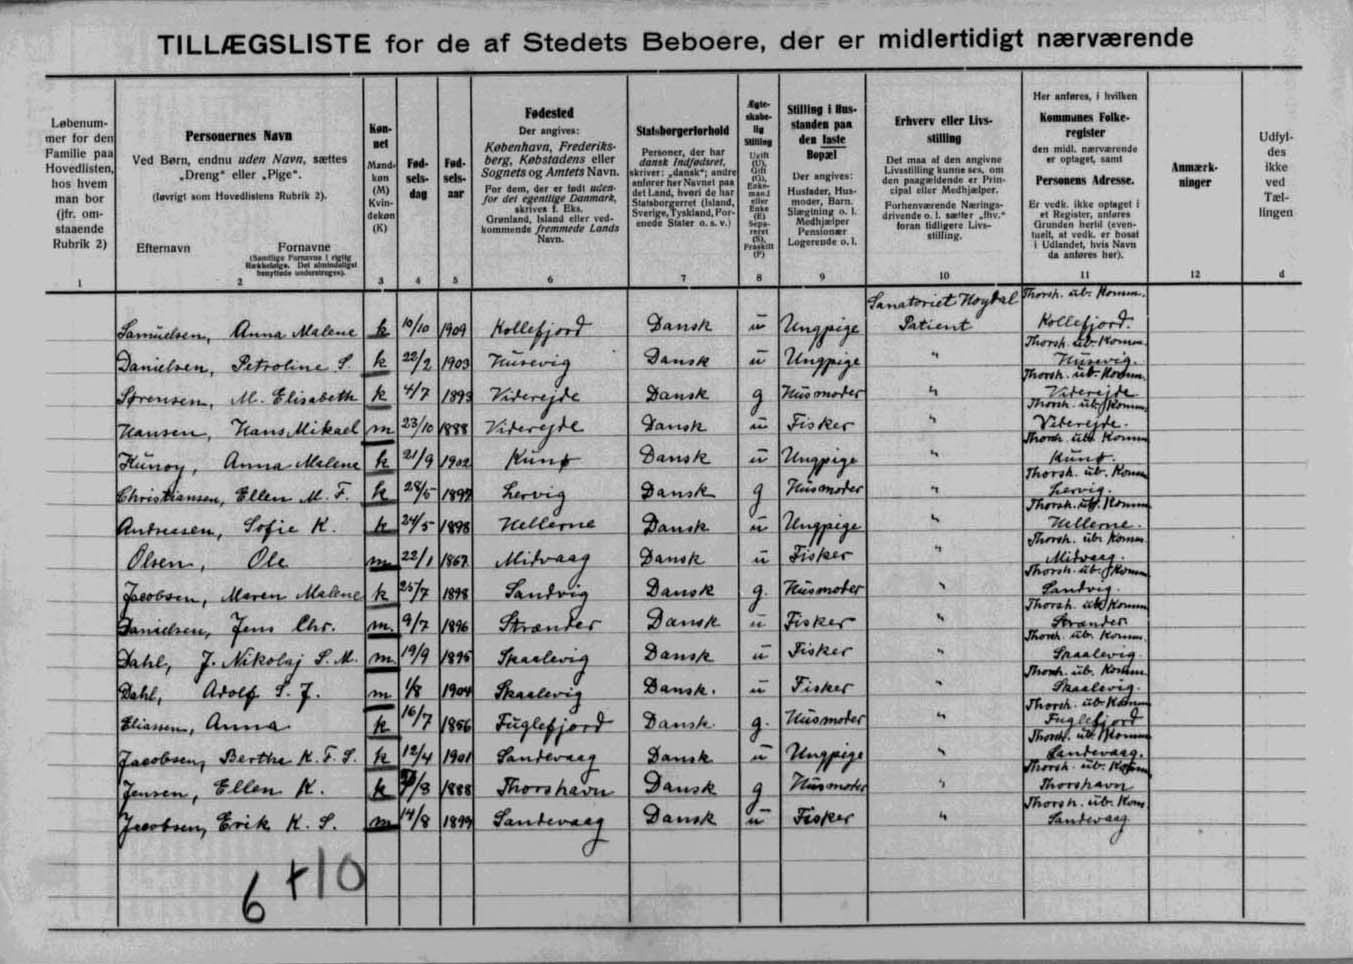 TILLÆGSLISTE for de af Stedets Beboere, der er midlertidigt nærværende
Løbenum-
mer for den
Familie paa
Hovedlisten,
hos hvem
man bor
(jfr. om-
staaende
Rubrik 2)
1
Personernes Navn
Ved Børn, endnu uden Navn, sættes
„Dreng" eller „Pige".
(Iøvrigt som Hovedlistens Rubrik 2).
Efternavn Fornavne
(Samtlige Fornavne i rigtig
Rækkefølge. Det almindeligst
benyttede understreges).
2
Køn-
net
Mand-
køn
(M)
Kvin-
dekøn
(K)
3
Fød-
sels-
dag
4
Fød-
sels-
aar
5
Fødested
Der angives:
København, Frederiks-
berg, Købstadens eller
Sognets og Amtets Navn.
For dem, der er født uden-
for det egentlige Danmark,
skrives f. Eks.
Grønland, Island eller ved-
kommende fremmede Lands
Navn.
6
Statsborgerforhold
Personer, der har
dansk Indfødsret,
skriver: „dansk"; andre
anfører her Navnet paa
det Land, hvori de har
Statsborgerret (Island,
Sverige, Tyskland, For-
enede Stater o. s. v.)
7
Ægte-
skabe-
lig
Stilling
Ugift
(U),
Gift
(G),
Enke-
mand
eller
Enke
(E)
Sepa-
reret
(S),
Fraskilt
(F)
8
Stilling i Hus-
standen paa
den faste
Bopæl
Der angives:
Husfader, Hus-
moder, Barn,
Slægtning o. l.
Medhjælper
Pensionær
Logerende o. l.
9
Erhverv eller Livs-
stilling
Det maa af den angivne
Livsstilling kunne ses, om
den paagældende er Prin-
cipal eller Medhjælper.
Forhenværende Nærings-
drivende o. l. sætter „fhv."
foran tidligere Livs-
stilling.
10
Her anføres, i hvilken
Kommunes Folke-
register
den midl. nærværende
er optaget, samt
Personens Adresse.
Er vedk. ikke optaget i
et Register, anføres
Grunden hertil (even-
tuelt, at vedk. er bosat
i Udlandet, hvis Navn
da anføres her).
11
Anmærk-
ninger
12
Udfyl-
des
ikke
ved
Tæl-
lingen
d
Sanatoriet Hoydal Thorsh. ub. Komm.
Samuelsen, Anna Malene k 10/10 1909 Kollefjord Dansk u Ungpige Patient Kollefjord.
Thorsh. ub. Komm.
Danielsen, Petroline S. k 22/2 1903 Husevig Dansk u Ungpige " Husevig.
Thorsh. ub. Komm.
Sørensen, M. Elisabeth k 4/7 1893 Viderejde Dansk g Husmoder " Viderejde
Thorsh. ub. Komm.
Hansen, Hans Mikael m 23/10 1888 Viderejde Dansk u Fisker " Viderejde.
Thorsh. ub. Komm
Kunoy, Anna Malene k 21/9 1902 Kunø Dansk u Ungpige " Kunø.
Thorsh. ub. Komm
Christiansen, Ellen M. F. k Lervig Dansk g Husmoder " Lervig.
Thorsh. ub. Komm
Andreasen, Sofie K. k 24/5 1898 Hellerne Dansk u Ungpige " Hellerne.
Thorsh. ub. Komm.
Olsen, Ole m 22/1 1867 Midvaag Dansk u Fisker " Midvaag.
Thorsh. ub. Komm
Jacobsen, Maren Malene k 25/7 1898 Sandvig Dansk g. Husmoder " Sandvig.
Thorsh. ub. Komm
Danielsen, Jens Chr. m. 9/7 1896 Strander Dansk u Fisker " Strander.
Thorsh. ub. Komm.
Dahl, J. Nikolaj S. M. m 19/9 1895 Skaalevig Dansk u Fisker " Skaalevig.
Thorsh. ub. Komm
Dahl, Adolf S. J. m 1/8 1904 Skaalevig Dansk. u Fisker " Skaalevig.
Thorsh. ub. Komm
Eliassen, Anna k 16/7 1866 Fuglefjord Dansk. g. Husmoder " Fuglefjord
Thorsh. ub. Komm
Jacobsen, Berthe K. F. S. k 12/4 1901 Sandevaag Dansk u Ungpige " Sandevaag.
Thorsh. ub. Komm
Jensen, Ellen K. k 1888 Thorshavn Dansk g Husmoder " Thorshavn
Thorsh. ub. Kom.
Jacobsen, Erik K. S. m 14/8 1899 Sandevaag Dansk u Fisker " Sandevaag
6 +10